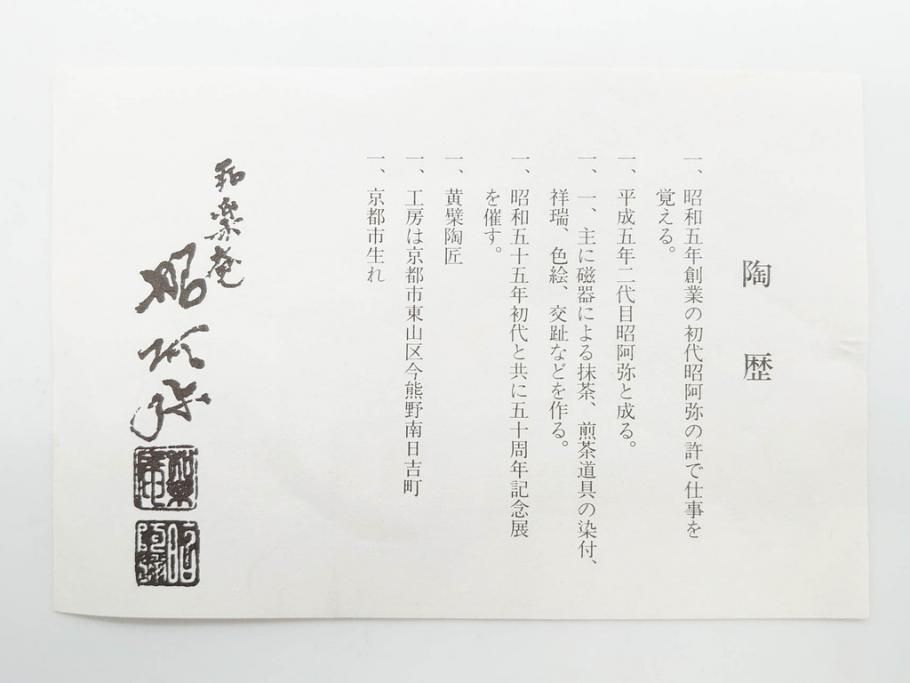 陶歴
一、昭和五年創業の初代昭阿弥の許で仕事を
覚える。
一、平成五年二代目昭阿弥と成る。
一、一、主に磁器による抹茶、煎茶道具の染付、
祥瑞、色絵、交趾などを作る。
一、昭和五十五年初代と共に五十周年記念展
を催す。
一、黄檗陶匠
一、工房は京都市東山区今熊野南日吉町
一、京都市生れ
和楽庵
昭阿弥